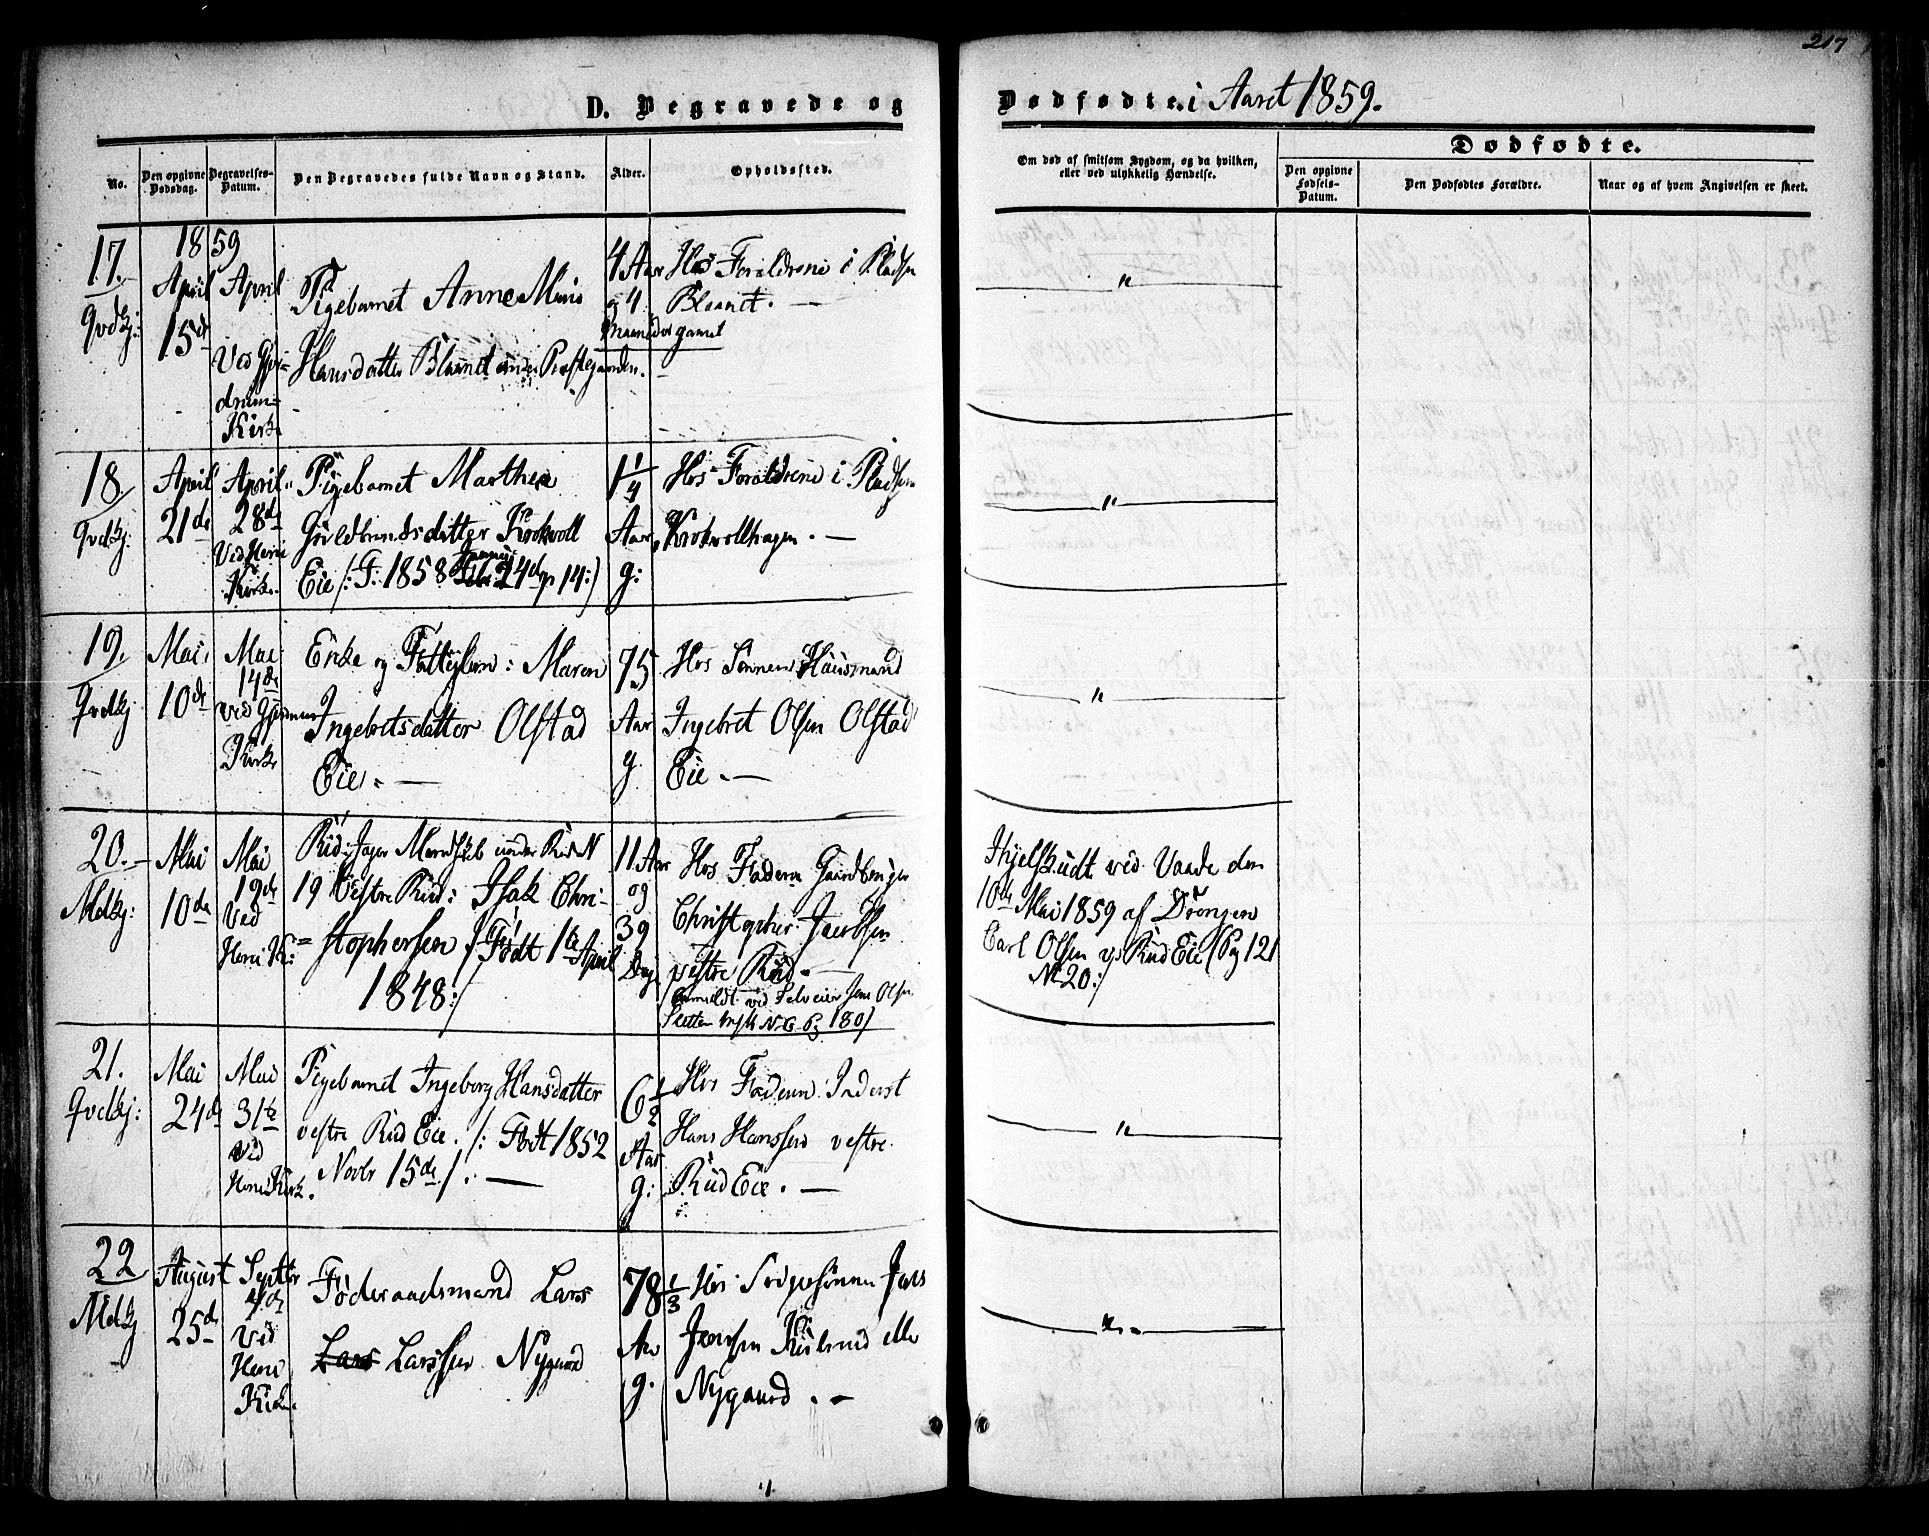 217
D. Begravede og Dødfødte i Aaret 1859.
No.
Den opgivne Dødsdag.
Begravelses-Datum.
Den Begravedes fulde Navn og Stand.
Alder.
Opholdssted.
Om død af smitsom Sygdom, og da hvilken, eller ved ulykkelig Hændelse.
Dødfødte.
Den opgivne Fødsels-Datum.
Den Dødfødtes Forældre.
Naar og af hvem Angivelsen er skeet.
1859
17.
Qvdkj:
April
15de
April
Ved Gjer=
drum=
Kirke
Pigebarnet Anne Marie
Hansdatter Blaanet under Præstegaarden.
4 Aar
og 4
Maaneder gamel
Hos Forældrene i Pladsen
Blaanet. —
"
18.
Qvdkj:
April
21de
April
28de
Ved Heni
Kirke.
Pigebarnet Marthea
Guldbrandsdatter Krokvoll
Eie /: F. 1858 24de p 14:)
1 1/4
Aar
g:
Hos Forældrene i Pladsen
Krokvollhagen. —
"
19.
Qvdkj
Mai
10de
Mai
14de
ved Gjerdrum
Kirke
Enke og Fattiglem: Maren
Ingebretsdatter Olstad
Eie. —
75
Aar
g.
Hos Sønnen Huusmand
Ingebret Olsen Olstad
Eie. —
"
20. —
Mdkj:
Mai
10de
Mai
19de
Ved
Heni K:
Rud: Jager Mandskab under Rud N
19 Vestre Rud: Isak Chri-
stophersen /: Født 1ste April
1848:/
11 Aar
og
39
Dag
Hos Faderen Gaardbruger
Christopher Jacobsen
vestre Rud. —
(Anmeldt ved Selveier Jens Olsen
Sletten N. 6 Pg 180)
Ihjelskudt ved Vaade den
10de Mai 1859 af Drengen
Carl Olsen Rud Eie (Pg 121
N 20:/
21.
Qvdkj:
Mai
24de
Mai
31te
ved
Heni Kirk.
Pigebarnet Ingeborg Hansdatter
vestre Rud Eie. /: Født 1852
Novbr 15de /. —
6 1/2
Aar
g:
Hos Faderen Inderst
Hans Hanssen vestre
Rud Eie. —
"
22
Mdkj
August
25de
Septbr
4de
Ved
Heni
Kirke.
Føderaadsmand Lars
Larssen Nygaard
78 1/3
Aar
g.
Hos Svigersønnen Jens
Jenssen Kulsrud eller
Nygaard. —
"